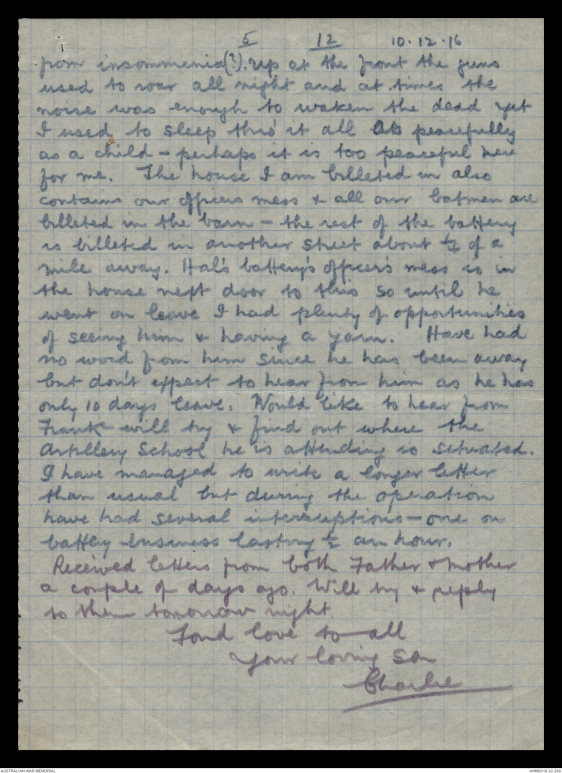 5 12 10.12.16
from insommenia(?). Up at the front the guns
used to roar all night and at times the
noise was enough to waken the dead yet
I used to sleep thro' it all as peacefully
as a child - perhaps it is too peaceful here
for me. The house I am billeted in also
contains our officers mess & all our batmen are
billeted in the barn - the rest of the battery
is billeted in another street about ½ of a
mile away. Hal's battery's officer's mess is in
the house next door to this so until he
went on leave I had plenty of opportunities
of seeing him & having a yarn. Have had
no word from him since he has been away
but don't expect to hear from him as he has
only 10 days leave. Would like to hear from
Frank - will try & find out where the
Artillery School he is attending is situated.
I have managed to write a longer letter
than usual but during the operation
have had several interruptions - one on
battery business lasting ½ an hour.
Received letters from both Father & Mother
a couple of days ago. Will try & reply
to them tomorrow night
Fond love to all
Your loving son
Charlie
AUSTRALIAN WAR MEMORIAL